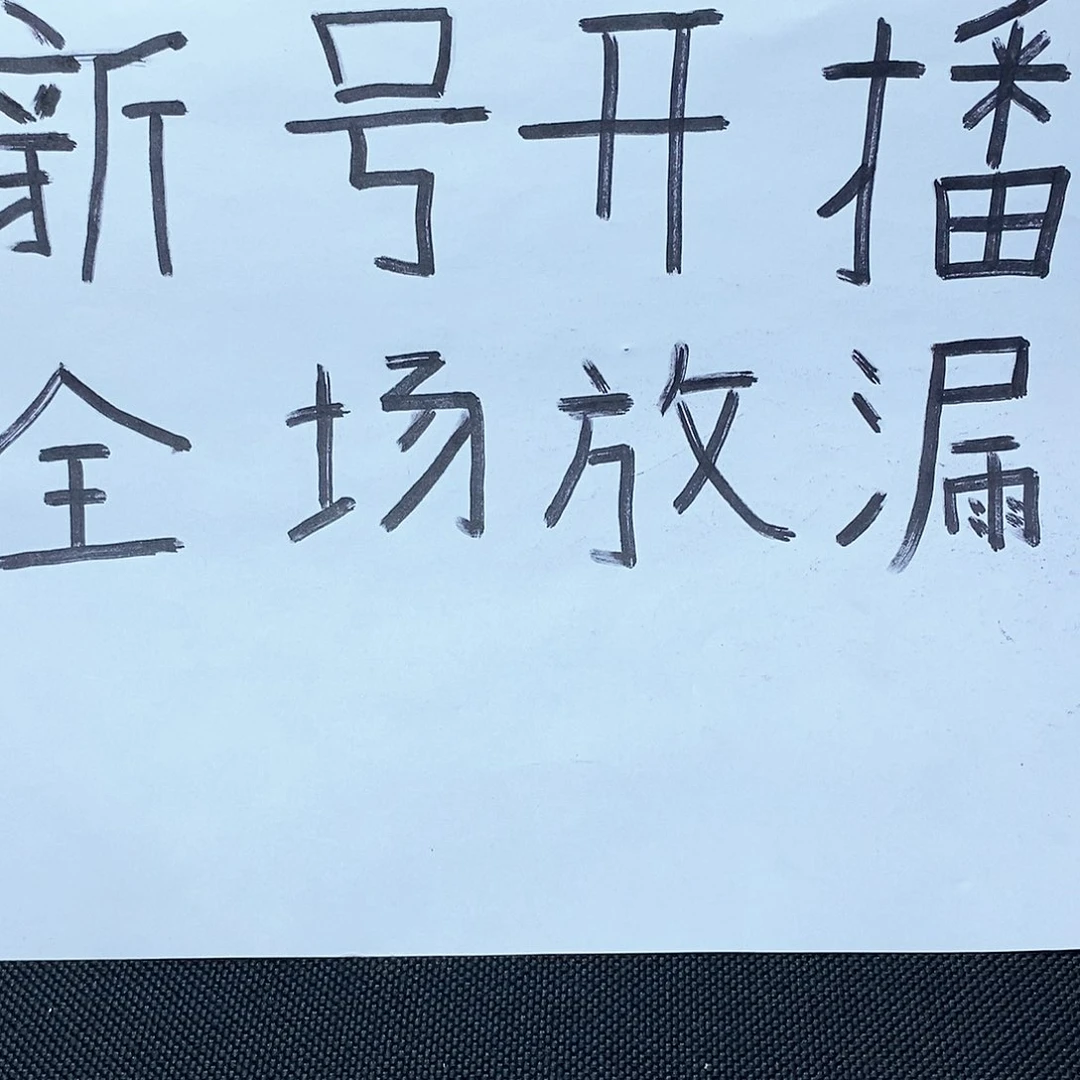 新号开播
全场放漏